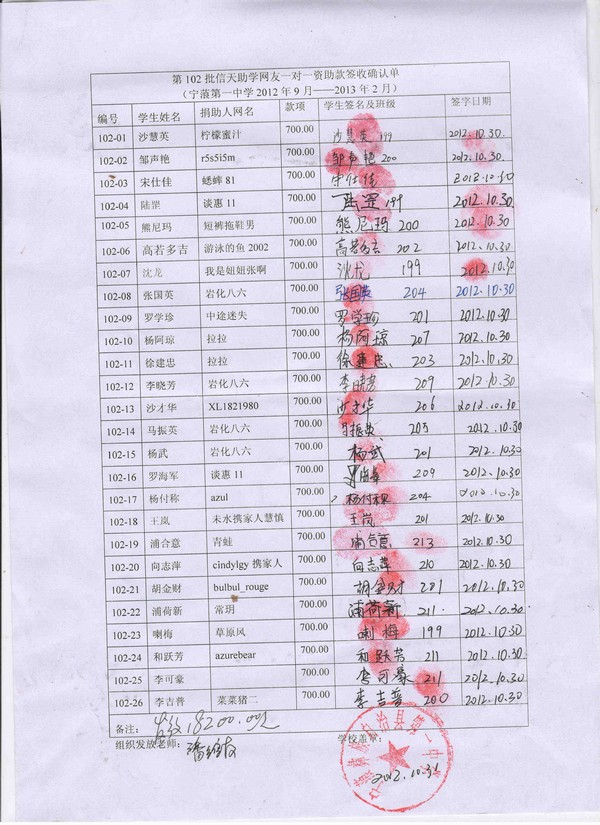 第 102 批信天助学网友一对一资助款签收确认单
（宁蒗第一中学 2012 年 9 月——2013 年 2 月）
编号 学生姓名 捐助人网名 款项 学生签名及班级 签字日期
102-01 沙慧英 柠檬蜜汁 700.00 沙慧英 199 2012.10.30.
102-02 邹声艳 r5s5i5m 700.00 邹声艳 200 2012.10.30.
102-03 宋仕佳 蟋蟀 81 700.00 宋仕佳 2012.10.30
102-04 陆罡 谈惠 11 700.00 陆罡 199 2012.10.30
102-05 熊尼玛 短裤拖鞋男 700.00 熊尼玛 200 2012.10.30
102-06 高若多吉 游泳的鱼 2002 700.00 高若多吉 202 2012.10.30
102-07 沈龙 我是妞妞张啊 700.00 沈龙 199 2012.10.30
102-08 张国英 岩化八六 700.00 张国英 204 2012.10.30
102-09 罗学珍 中途迷失 700.00 罗学珍 201 2012.10.30
102-10 杨阿琼 拉拉 700.00 杨阿琼 207 2012.10.30
102-11 徐建忠 拉拉 700.00 徐建忠 203 2012.10.30
102-12 李晓芳 岩化八六 700.00 李晓芳 209 2012.10.30
102-13 沙才华 XL1821980 700.00 沙才华 206 2012.10.30
102-14 马振英 岩化八六 700.00 马振英 205 2012.10.30
102-15 杨武 岩化八六 700.00 杨武 201 2012.10.30
102-16 罗海军 谈惠 11 700.00 209 2012.10.30
102-17 杨付称 azul 700.00 杨付称 204 2012.10.30
102-18 王岚 未水携家人慧慎 700.00 王岚 201 2012.10.30
102-19 浦合意 青蛙 700.00 浦合意 213 2012.10.30
102-20 向志萍 cindylgy 携家人 700.00 向志萍 210 2012.10.30
102-21 胡金财 bulbul_rouge 700.00 胡金财 201 2012.10.30
102-22 浦荷新 常玥 700.00 浦荷新 211 2012.10.30
102-23 喇梅 草原风 700.00 喇梅 199 2012.10.30
102-24 和跃芳 azurebear 700.00 和跃芳 211 2012.10.30
102-25 李可豪 700.00 李可豪 211 2012.10.30
102-26 李吉普 菜菜猪二 700.00 李吉普 200 2012.10.30
备注： 18200.00元
组织发放老师： 学校盖章：
2012.10.31